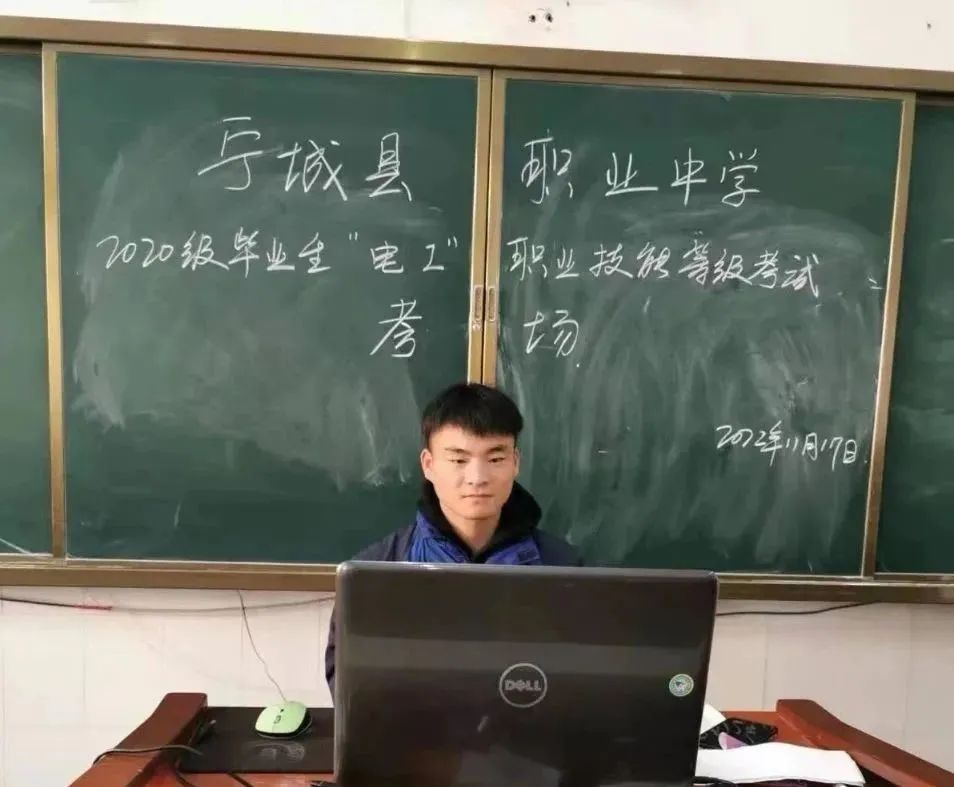 宁城县职业中学
2020级毕业生“电工”职业技能等级考试
考场
2022年11月17日
DELL